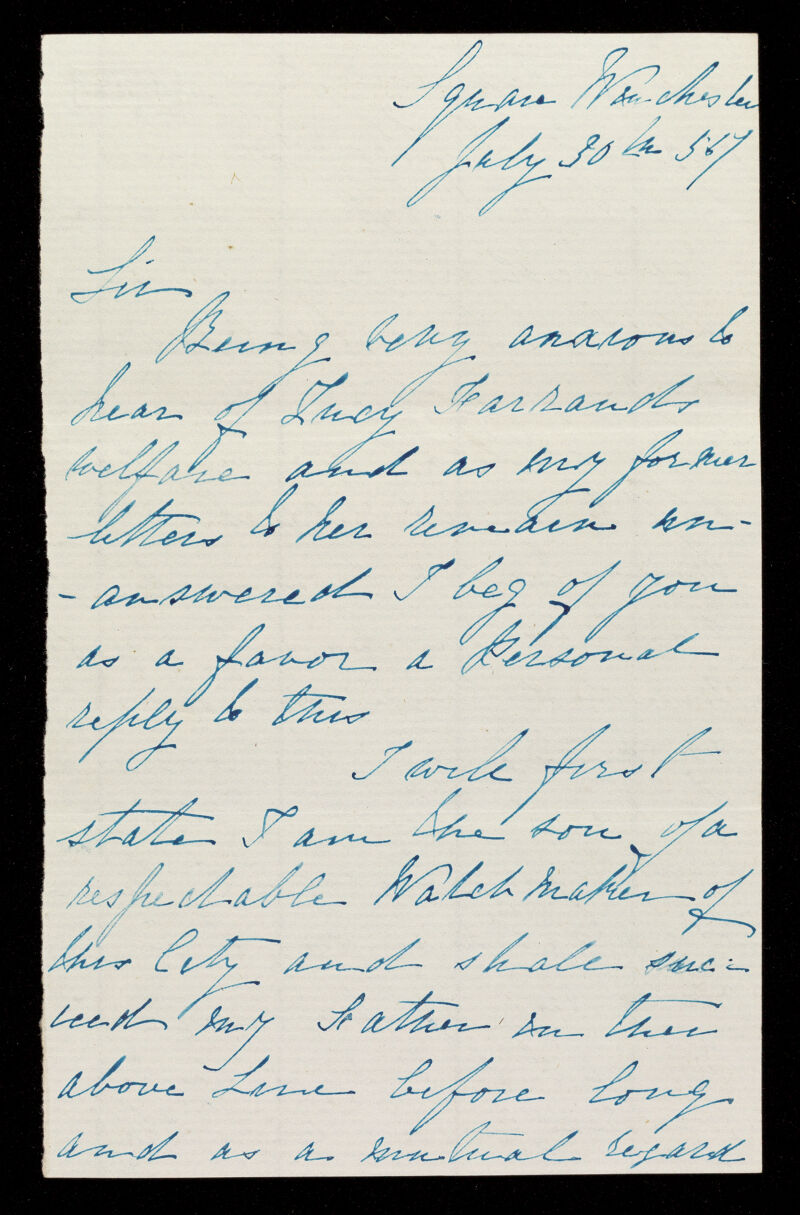 Square Winchester
July 30th 567
Sir
Being very anxious to
hear of Lucy Farrands
welfare and as my former
letters to her remain un-
-answered I beg of you
as a favor a Personal
reply to this
I will first
state I am the son of a
respectable Watch Maker of
this City and shall suc-
ceed my Father in the
above Line before long
and as a mutual regard